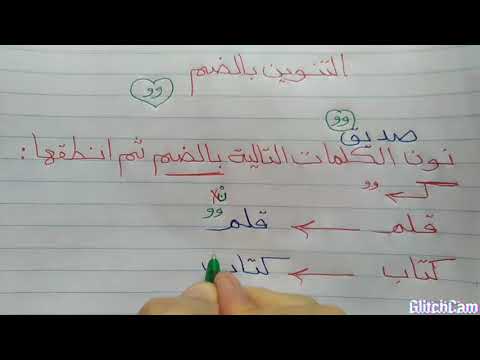 التنوين بالضم
وو
وو
صديق
نون الكلمات التالية بالضم ثم انطقها :
وو
نْ
وو
قلم ← قلم
كتاب ← كتاب
GlitchCam